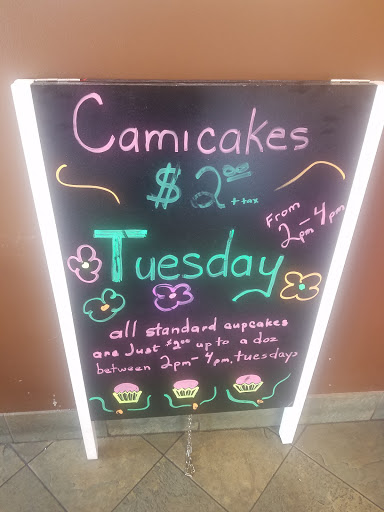 Camicakes
$2.00 + tax
Tuesday
From
2pm - 4pm
all standard cupcakes
are Just $2.00 up to a doz
between 2pm - 4pm, tuesdays